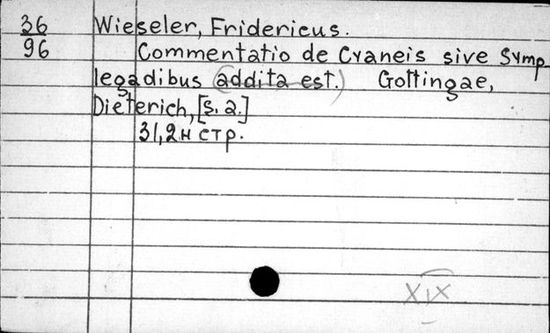 36 Wieseler, Fridericus.
96 Commentatio de Cyaneis sive Symp
legadibus (addita est.) Gottingae,
Dieterich, [s. a.]
31, 2н стр.
XIX